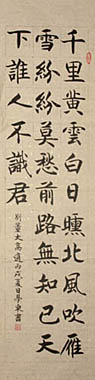 千里黃雲白日曛北風吹雁
雪紛紛莫愁前路無知己天
下誰人不識君
別董大高適丙戌夏日夢東書